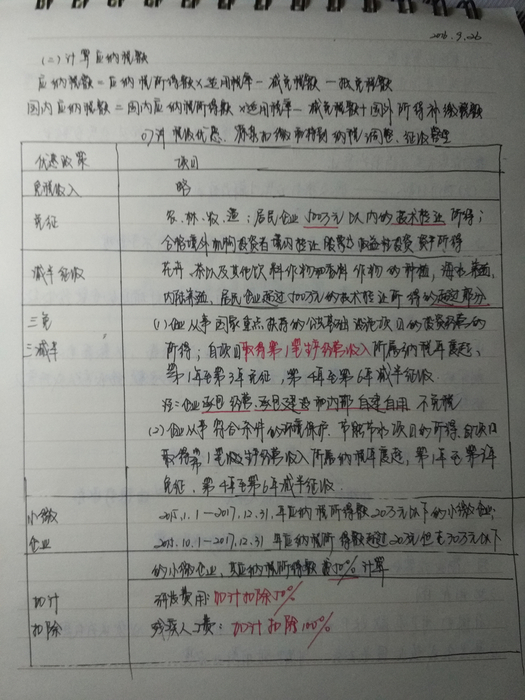 2016.9.26
(二)计算应纳税额
应纳税额=应纳税所得额×适用税率-减免税额-抵免税额
国内应纳税额=国内应纳税所得额×适用税率-减免税额+国外所得补缴税额
税收优惠、源泉扣缴和特别纳税调整、征收管理
优惠政策 项目
免税收入 略
免征 农、林、牧、渔;居民企业500万元以内的技术转让所得;
合格境外机构投资者境内转让股票等权益性投资资产所得
减半征收 花卉、茶以及其他饮料作物和香料作物的种植,海水养殖、
内陆养殖,居民企业超过500万元的技术转让所得的超过部分
三免 (1)企业从事国家重点扶持的公共基础设施项目的投资经营的
三减半 所得;自项目取得第1笔生产经营收入所属纳税年度起、
第1年至第3年免征,第4年至第6年减半征收
注:企业承包经营、承包建设和内部自建自用 不免税
(2)企业从事符合条件的环境保护、节能节水项目的所得、自项目
取得第1笔生产经营收入所属纳税年度起,第1年至第3年
免征、第4年至第6年减半征收.
小微 2015.1.1-2017.12.31.年应纳税所得额20万元以下的小微企业;
企业 2015.10.1-2017.12.31.年应纳税所得额超过20万元但在30万元以下
的小微企业,其应纳税所得额减50%计算
加计 研发费用:加计扣除50%
扣除 残疾人工资:加计扣除100%